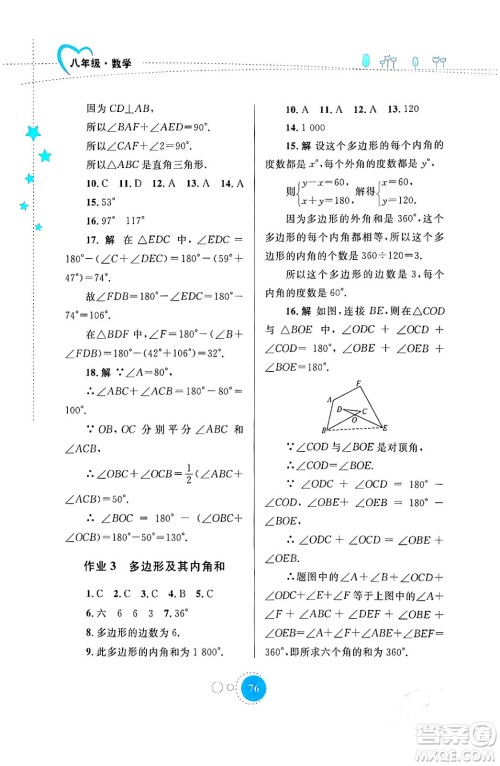 八年级·数学
因为 CD⊥AB,
所以∠BAF+∠AED=90°.
所以∠CAF+∠2=90°.
所以△ABC 是直角三角形.
10. C 11. D 12. C 13. C 14. C
15. 53°
16. 97° 117°
17. 解 在△EDC 中,∠EDC=
180°-(∠C+∠DEC)=180°-(47°+
59°)=74°.
故∠FDB=180°-∠EDC=180°-
74°=106°.
在△BDF 中,∠F=180°-(∠B+
∠FDB)=180°-(42°+106°)=32°.
18. 解 ∵∠A=80°,
∴∠ABC+∠ACB=180°-∠A=
100°.
∵ OB,OC 分别平分∠ABC 和
∠ACB,
∴∠OBC+∠OCB=1/2(∠ABC+
∠ACB)=50°.
∴∠BOC=180°-(∠OBC+
∠OCB)=130°.
作业 3 多边形及其内角和
1. C 2. C 3. A 4. B 5. C
6. 六 6 6 3 7. 36°
8. 多边形的边数为 6.
9. 多边形的内角和为 1 800°.
10. A 11. A 12. A 13. 120
14. 1 000
15. 解 设这个多边形的每个内角的
度数都是 x°,每个外角的度数都是 y°,
则{y-x=60, x+y=180, 解得{x=60, y=120.
因为多边形的外角和是 360°,这个多
边形的每个内角都相等,所以这个多边形
的内角的个数是 360÷120=3.
所以这个多边形的边数是 3,每个
内角的度数是 60°.
16. 解 如图,连接 BE,则在△COD
与△BOE 中,∠ODC+∠OCD+
∠COD=180°,∠OBE+∠OEB+
∠BOE=180°.
F
A
D
C
O
B
E
∵∠COD 与∠BOE 是对顶角,
∴∠COD=∠BOE.
∵∠ODC+∠OCD=180°-
∠COD,∠OBE+∠OEB=180°-
∠BOE,
∴∠ODC+∠OCD=∠OBE+
∠OEB.
∴题图中∠A+∠ABC+∠C+
∠D+∠E+∠F等于∠A+∠F+
∠ABE+∠BEF=360°.
所以所求六个角的和=360°.
76
作业帮答案
www.mofangge.com